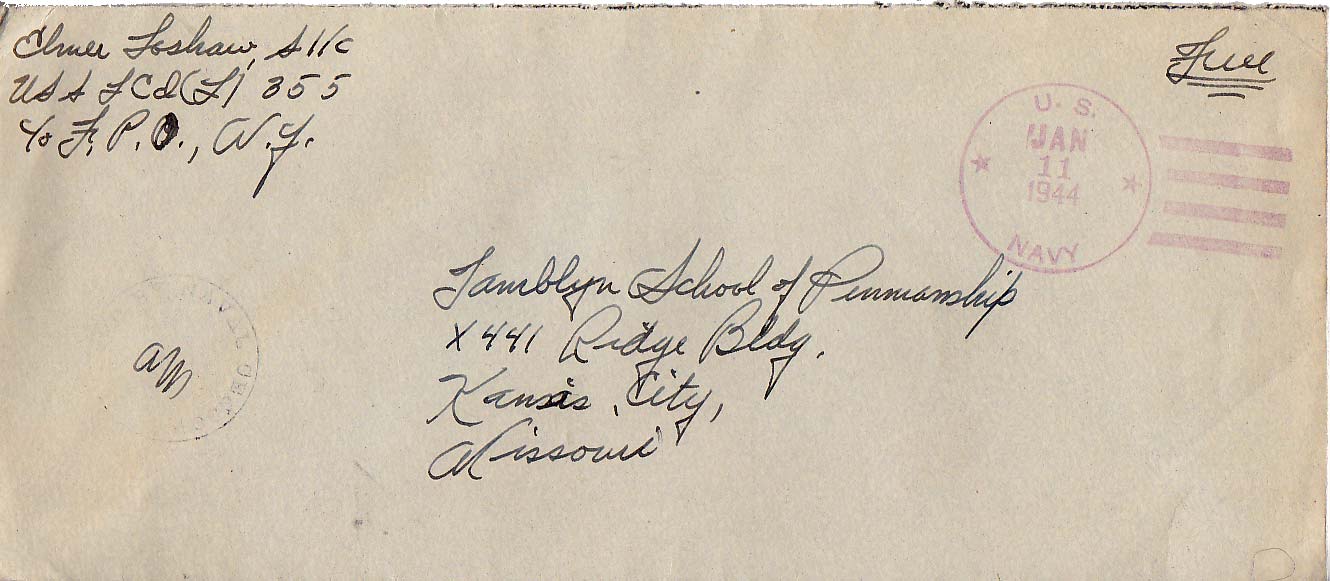 Elmer Loshaw, S 1/c
USS LCI(L) 355
c/o F.P.O., N.Y.
Free
U.S.
JAN
11
1944
NAVY
NAVAL
am
Tamblyn School of Penmanship
X441 Ridge Bldg.
Kansas, City,
Missouri